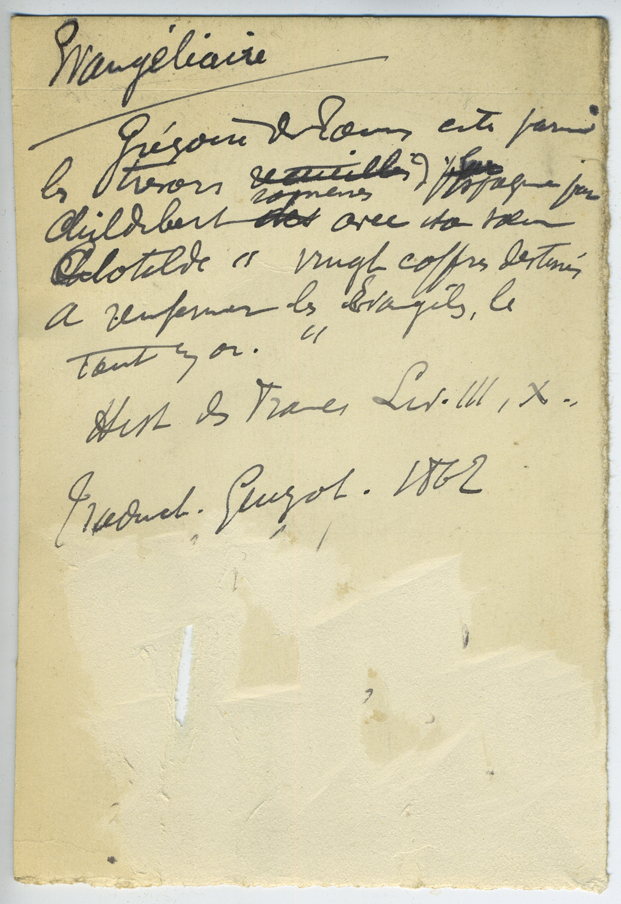 Evangéliaire
Grégoire de Tours cite parmi
les trésors recueillis d'Espagne par
ramenés
Childebert avec sa sœur
Clotilde " vingt coffres destinés
a renfermer les Evangiles, le
tout en or. "
Hist des Francs Liv. III, X.
Traduct. Guizot. 1862